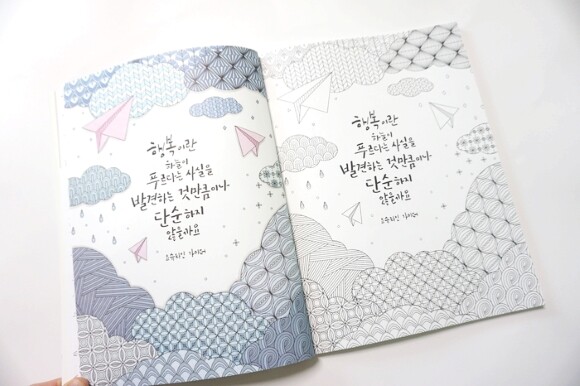 행복이란
하늘이
푸르다는 사실을
발견하는 것만큼이나
단순하지
않을까요
요슈타인 가아더
행복이란
하늘이
푸르다는 사실을
발견하는 것만큼이나
단순하지
않을까요
요슈타인 가아더